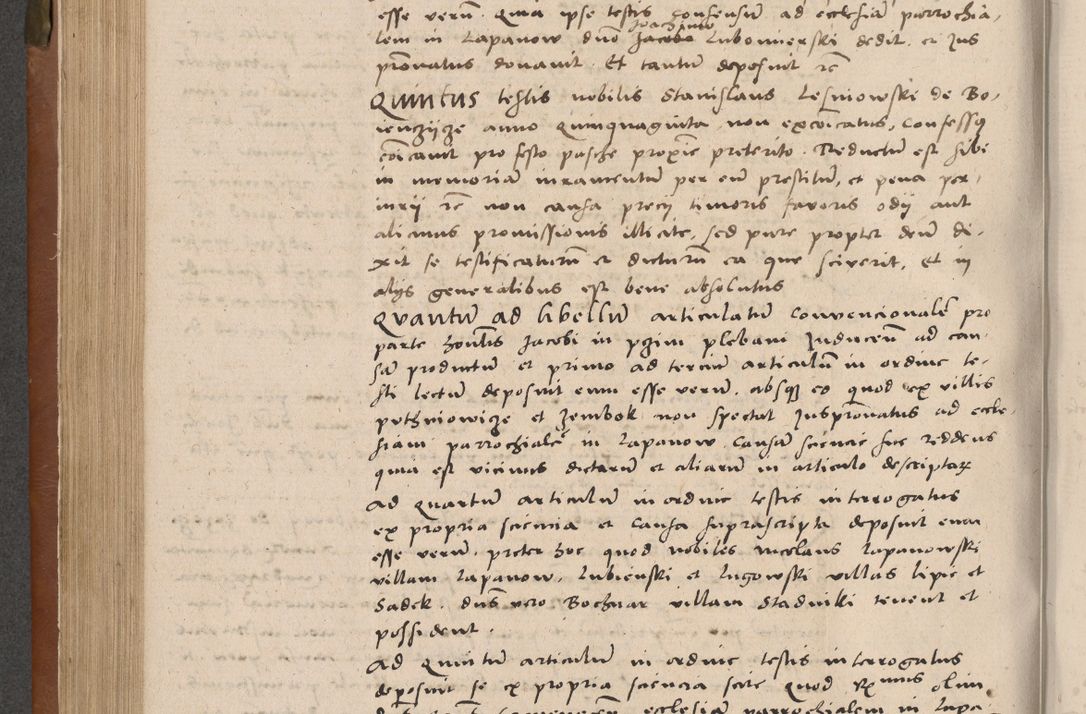 esse verum. Quia ipse testis consensum ad ecclesiam parrochia-
Joachimo
lem in Lapanow dno Jacobo Lubomierski dedit. et Jus
prōnatus donavit. Et tantum deposuit rē
Quintus testis nobilis Stanislaus Lesniowski de Bo-
anno quinquaginta, non excōicatus, Confessq
cōicavit pro festo pasche proxīe preterito. Reductum est sibi
in memoriam iuramentum per eum prestitum, et pena per-
iurij rē non causa precij timoris favoris odij aut
alicuius promissionis illicite, sed pure propter deum di-
xit se testificaturum et dicturum ea que sciverit, Et in
alijs generalibus est bene absolutus
Quantum ad libellum articulatum Convencionalē pro
parte honlis Jacobi in plebani Inducen ad cau-
sam productum et primo ad tercium articulum in ordine te-
sti lectum deposuit eum esse verum, absqz eo quod ex villis
et Zembok non spectat Jusprōnatus ad eccle-
siam parrochialē in Lapanow. Causam sciencie sue reddens
quia est vicinus dictarum et aliarum in articulo descriptarx
Ad Quartum articulum in ordine testis interrogatus
ex propria sciencia et Causa suprascripta deposuit eum
esse verum, preter hoc quod nobiles Nicolaus Lapanowski
villam Lapanow, Lubienski et Lugowski villas Lipie et
Sadek. dns vero Bochnar villam Stadniki tenent et
possident.
Ad Quintum articulum in ordine testis interrogatus
deposuit se ex propria sciencia scire Quod olim
ecclesiam parrochialem in Lapa-